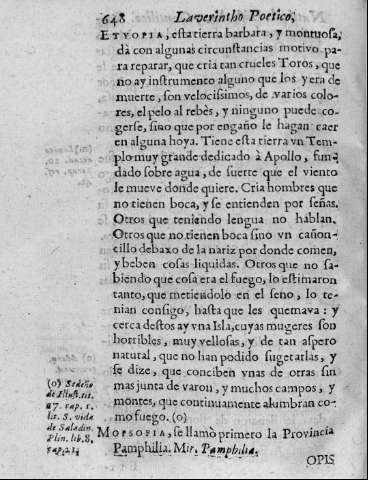 648 Laverintho Poetico,
ETYOPIA, esta tierra barbara, y montuosa,
dà con algunas circunstancias motivo pa-
ra reparar, que cria tan crueles Toros, que
no ay instrumento alguno que los yera de
muerte, son velocissimos, de varios colo-
res, el pelo al rebès, y ninguno puede co-
gerse, sino que por engaño le hagan caer
en alguna hoya. Tiene esta tierra vn Tem-
plo muy grande dedicado à Apollo, fun-
dado sobre agua, de suerte que el viento
le mueve donde quiere. Cria hombres que
no tienen boca, y se entienden por señas.
Otros que teniendo lengua no hablan.
Otros que no tienen boca sino vn cañon-
cillo debaxo de la nariz por donde comen,
y beben cosas liquidas. Otros que no sa-
biendo que cosa era el fuego, lo estimaron
tanto, que metiendolo en el seno, lo te-
nian consigo, hasta que les quemava: y
cerca destos ay vna Isla, cuyas mugeres son
horribles, muy vellosas, y de tan aspero
natural, que no han podido sugetarlas, y
se dize, que conciben vnas de otras sin
mas junta de varon, y muchos campos, y
montes, que continuamente alumbran co-
mo fuego. (o)
(o) Sedeño
de Illust. tit.
17. cap. 1.
lit. S. vida
de Saladin.
Plin. lib. 8.
cap. 21.
MOPSOPIA, se llamò primero la Provincia
Pamphilia. Mir. Pamphilia.
OPIS